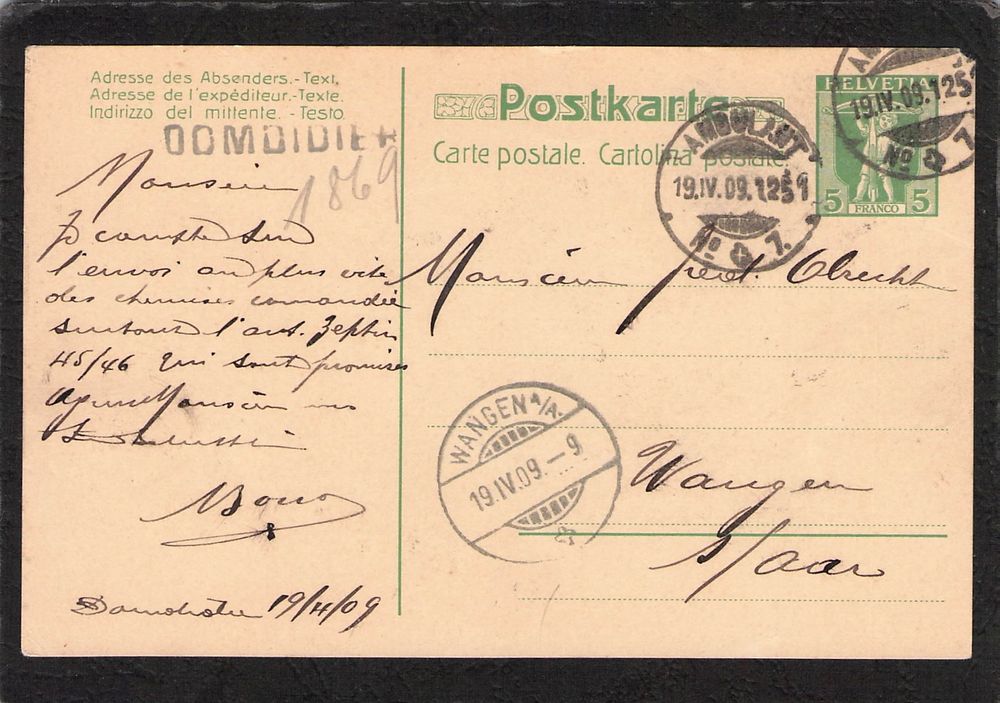 Adresse des Absenders.-Text.
Adresse de l'expéditeur.-Texte.
Indirizzo del mittente. -Testo.
DOMDIDIER
1869
Monsieur
Je compte sur
l'envoi au plus vite
des chemises comandée
surtout l'art. Zephir
45/46 qui sont promises
Monsieur
Domdidier 19/4/09
Postkarte
Carte postale. Cartolina postale.
HELVETIA
5 FRANCO 5
AMBULANT
19.IV.09.1251
No 7.
AM
19.IV.09.1251
No 7
Monsieur Obrecht
WANGEN A/A.
19.IV.09.-9
Wangen
s/aar